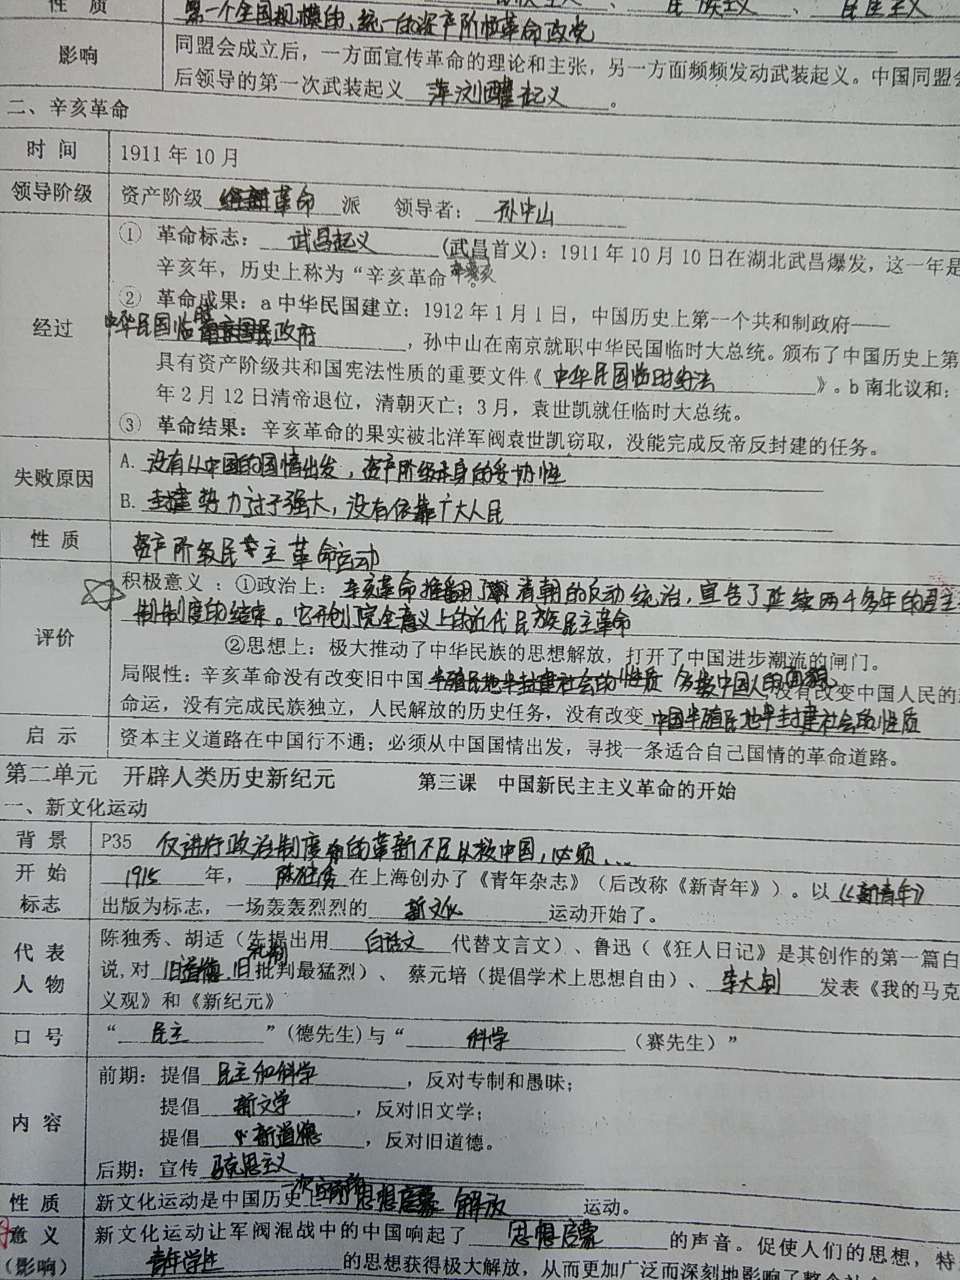 性 质 第一个全国规模的，统一的资产阶级革命政党
影响 同盟会成立后，一方面宣传革命的理论和主张，另一方面频频发动武装起义。中国同盟会
后领导的第一次武装起义 萍浏醴起义 。
二、辛亥革命
时 间 1911 年 10 月
领导阶级 资产阶级 革命 派 领导者： 孙中山
① 革命标志： 武昌起义 (武昌首义)：1911 年 10 月 10 日在湖北武昌爆发，这一年是
辛亥年，历史上称为“辛亥革命
② 革命成果：a 中华民国建立：1912 年 1 月 1 日，中国历史上第一个共和制政府——
经过 中华民国临时政府 ，孙中山在南京就职中华民国临时大总统。颁布了中国历史上第
具有资产阶级共和国宪法性质的重要文件《 中华民国临时约法 》。b 南北议和：
年 2 月 12 日清帝退位，清朝灭亡；3 月，袁世凯就任临时大总统。
③ 革命结果：辛亥革命的果实被北洋军阀袁世凯窃取，没能完成反帝反封建的任务。
失败原因 A. 没有从中国的国情出发，资产阶级本身的妥协性
B. 封建势力过于强大，没有依靠广大人民
性 质 资产阶级民主主革命运动
评价 积极意义：①政治上：辛亥革命推翻了清朝的反动统治，宣告了延续两千多年的君主
制制度的结束。它开创了完全意义上的近代民族民主革命
②思想上：极大推动了中华民族的思想解放，打开了中国进步潮流的闸门。
局限性：辛亥革命没有改变旧中国 半殖民地半封建社会的性质 ，没有改变中国人民的
命运，没有完成民族独立，人民解放的历史任务，没有改变 中国半殖民地半封建社会的性质
启 示 资本主义道路在中国行不通；必须从中国国情出发，寻找一条适合自己国情的革命道路。
第二单元 开辟人类历史新纪元 第三课 中国新民主主义革命的开始
一、新文化运动
背 景 P35 仅进行政治制度的革新不足以救中国，必须...
开 始 标志 1915 年， 陈独秀 在上海创办了《青年杂志》（后改称《新青年》）。以《新青年》
出版为标志，一场轰轰烈烈的 新文化 运动开始了。
代 表 人 物 陈独秀、胡适（先提出用 白话文 代替文言文）、鲁迅（《狂人日记》是其创作的第一篇白
说，对 旧道德 旧 礼制 批判最猛烈）、 蔡元培（提倡学术上思想自由）、 李大钊 发表《我的马克
义观》和《新纪元》
口 号 “ 民主 ”（德先生）与“ 科学 （赛先生）”
内 容 前期：提倡 民主和科学 ，反对专制和愚昧；
提倡 新文学 ，反对旧文学；
提倡 新道德 ，反对旧道德。
后期：宣传 马克思主义
性 质 新文化运动是中国历史上 一次空前的思想启蒙 解放 运动。
意 义 （影响） 新文化运动让军阀混战中的中国响起了 思想启蒙 的声音。促使人们的思想，特
青年学生 的思想获得极大解放，从而更加广泛而深刻地影响了